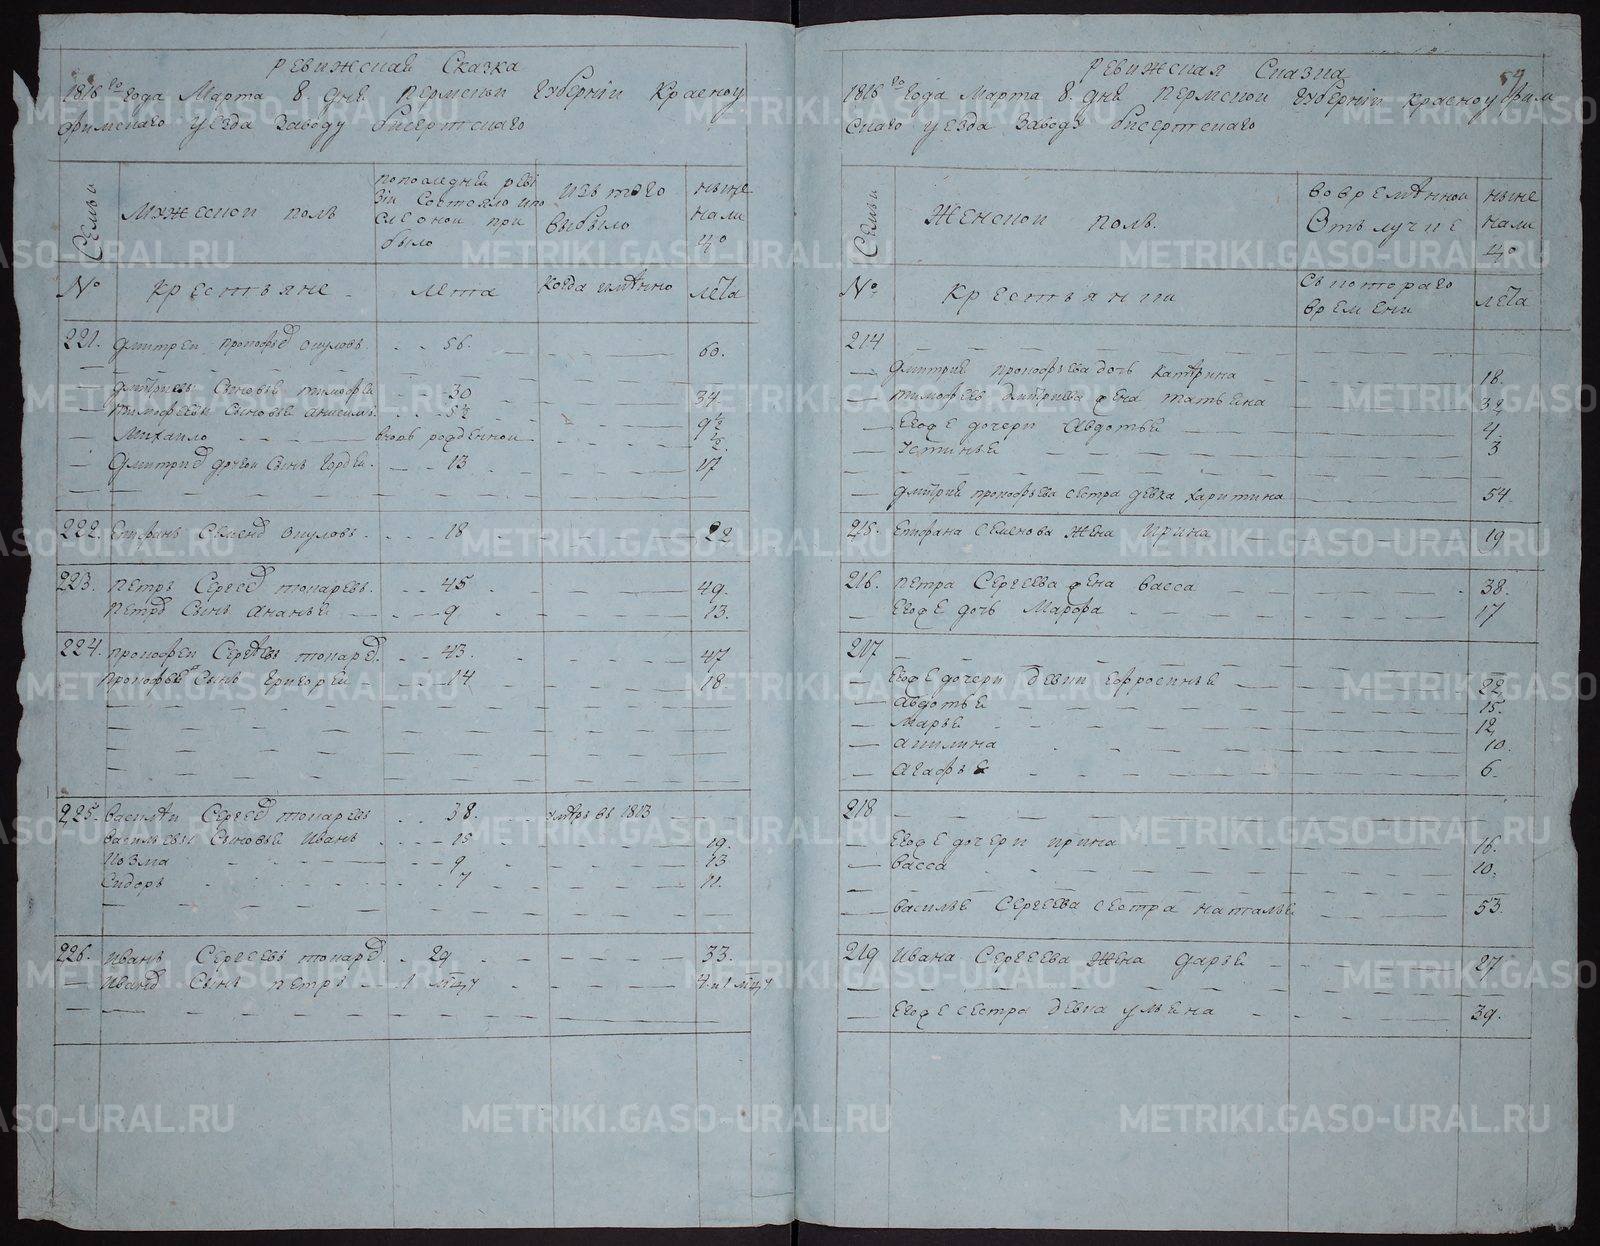 Ревижская Сказка
1816го года Марта 8. дня Пермской губернии Красноу
фимскаго уезда Заводу бисертскаго
Семьи
Мужеской полъ
по последней реви
зии состояло и по
сле оной при
было
изъ того
выбыло
ныне
нали
цо
№
Крестьяне
лета
Когда имянно
лета
221. Дмитрей Прокофьев 56. 60.
Дмитриевы сыновье Тимофей 30 34.
Тимофеевы сыновье 5½ 9½
Михайло вновь рожденной ½.
Дмитриев другой сынъ Гордей. 13 17
222. Епифанъ Семенов 18 22
223. Петръ Сергеев Токаревъ. 45 49.
Петра сынъ Ананье 9 13.
224. Прокофей Сергеевъ Токарев. 43. 47
Прокофья сынъ Григорей 14 18.
225. Василей Сергеев Токаревъ 38. умре въ 1813
Васильевы сыновье Иванъ 15 19.
Козма 9 13
Сидоръ 7 11.
226. Иванъ Сергеевъ Токарев. 29 33.
Иванов сынъ Петръ 1 мцъ 4 и 1 мцъ
Ревижская Сказка
54
1816го года Марта 8. дня Пермской губернии Красноуфим
скаго уезда Заводу бисертскаго
Семьи
Женской полъ.
во временной
Отълучке
ныне
нали
цо
№
Крестьянки
Съ котораго
времени
лета
214
Дмитрия Прокофьева дочь Катерина 18.
Тимофея Дмитриева жена Татьяна 32
Егоже дочери Авдотье 4
Устинье 3
Дмитрия Прокофьева сестра девка Харитина 54.
215. Епифана Семенова жена Ирина 19
216. Петра Сергеева жена Васса 38.
Егоже дочь Марфа 17
217
Егоже дочери девки Ефросинье 22
Авдотье 15.
Марье 12
Акилина 10.
Агафье 6.
218
Егоже дочери Ирина 16.
Васса 10.
Василье Сергеева сестра Наталье 53.
219 Ивана Сергеева жена Дарье 27
Егоже сестра девка Ульяна 39.
METRIKI.GASO-URAL.RU